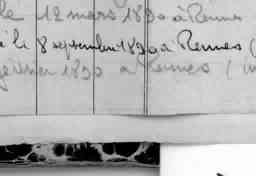 le 12 mars 1890 à Rennes
à le 8 septembre 1890 à Rennes (
janvier 1890 à Rennes (